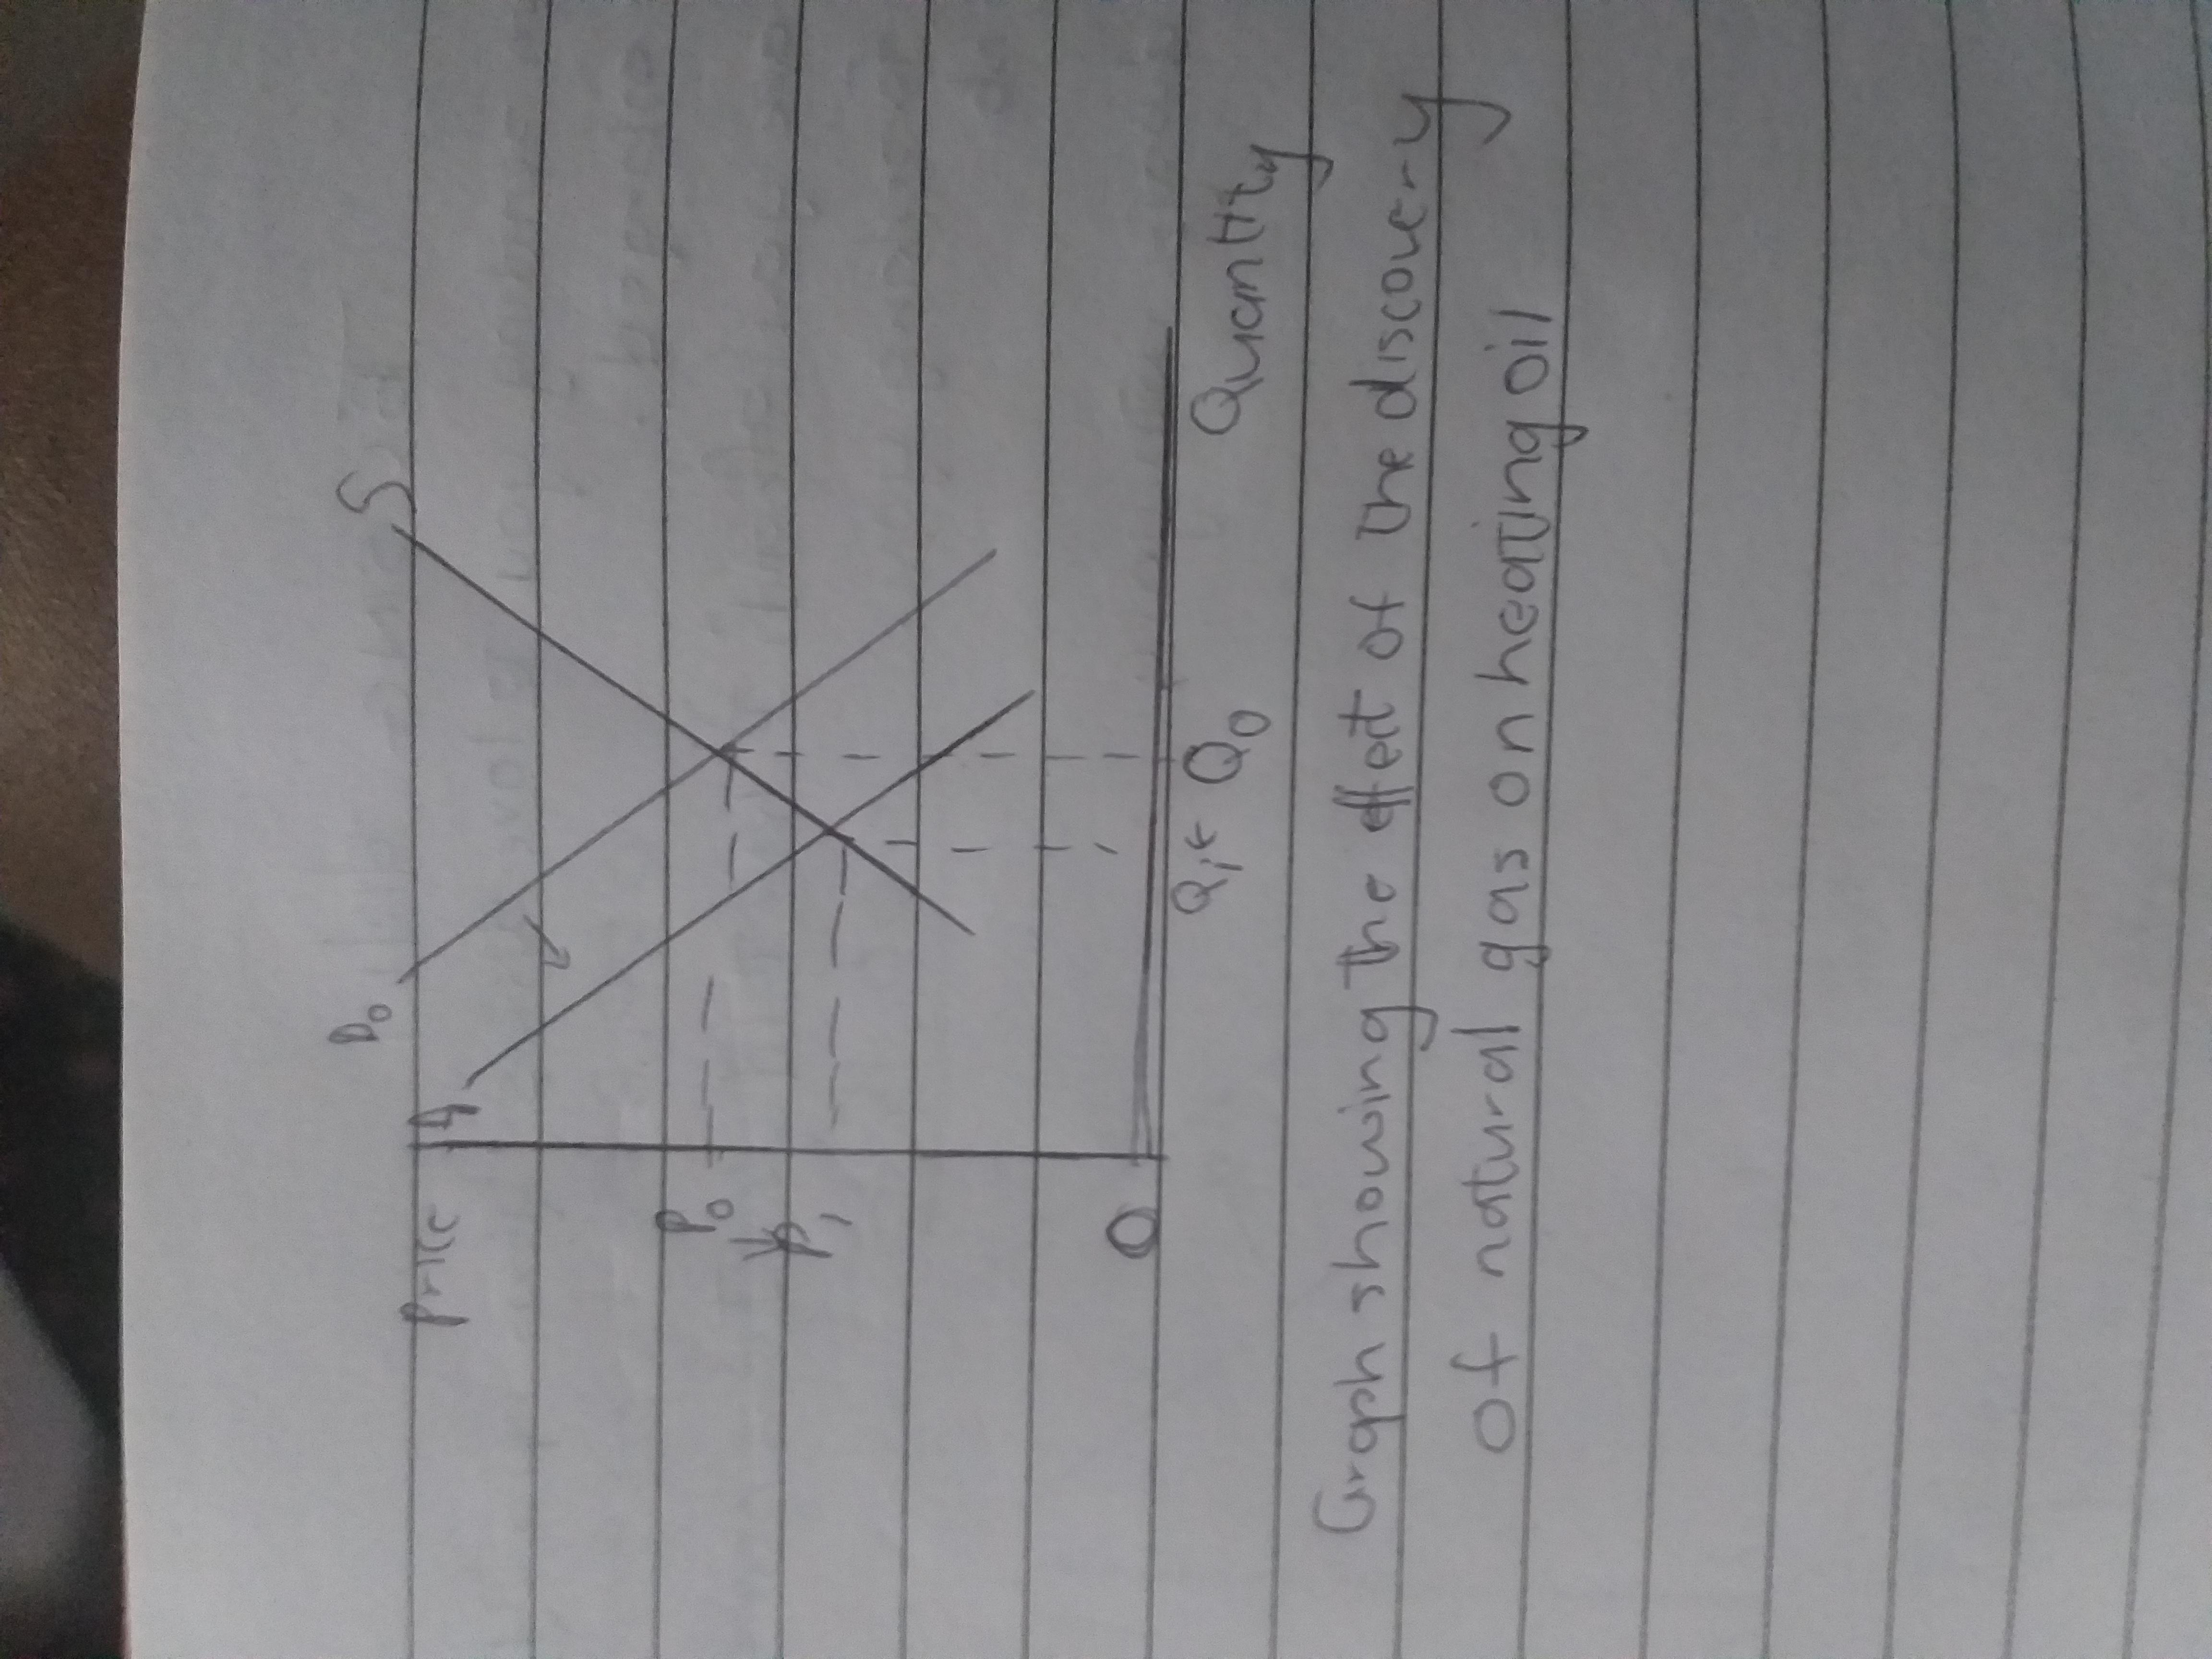 Price
D₀
S
P₀
P₁
O
Q₁ Q₀
Quantity
Graph showing the effect of the discovery
of natural gas on heating oil